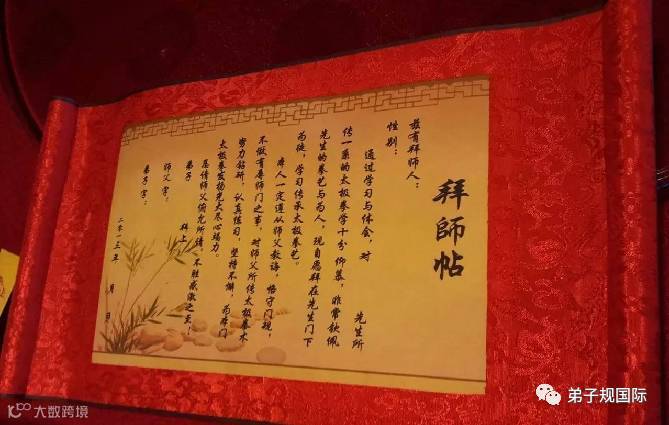 拜師帖
兹有拜师人：
性别：
通过学习与体会，对 先生所
传一系的太极拳学十分仰慕，非常钦佩
先生的拳艺与为人，现自愿拜在先生门下
为徒，学习传承太极拳艺。
本人一定遵从师父教诲，恪守门规，
不做有辱师门之事，对师父所传太极拳术
努力钻研，认真练习，坚持不懈，为本门
太极拳发扬光大尽心竭力。
恳请师父俯允所请，不胜感激之至！
弟子 拜上
师父字：
弟子字：
二零一三年 月 日
弟子规国际
大数跨境